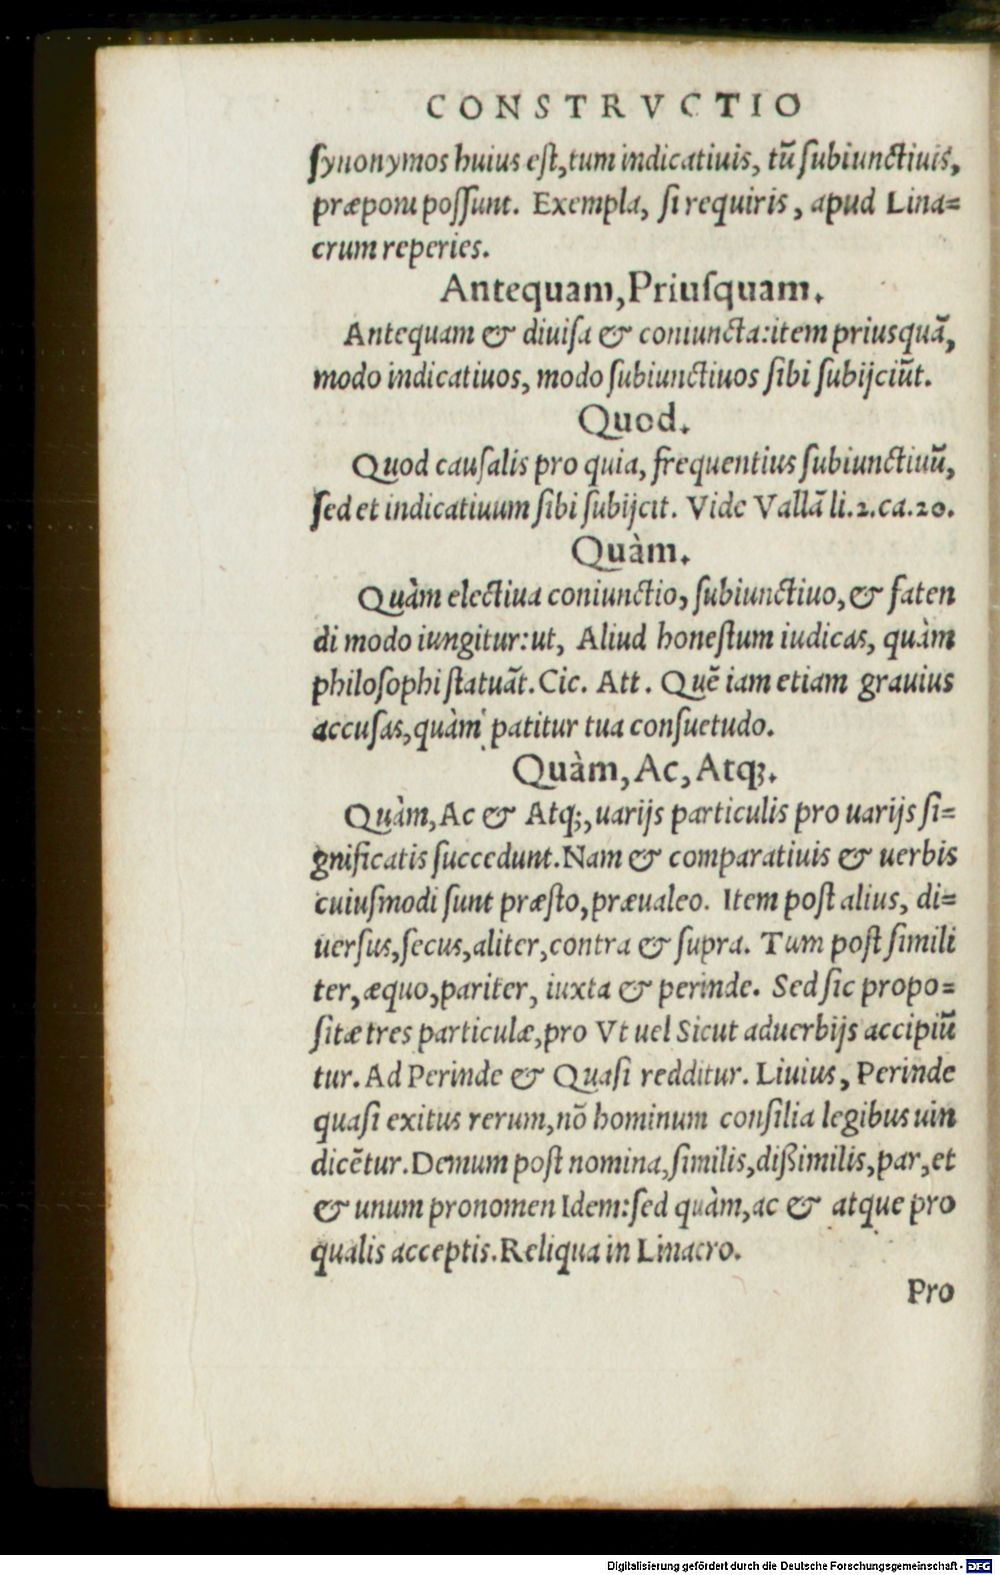 CONSTRVCTIO
ſynonymos huius eſt, tum indicatiuis, tũ ſubiunctiuis,
præponi poſſunt. Exempla, ſi requiris, apud Lina=
crum reperies.
Antequam, Priuſquam.
Antequam & diuiſa & coniuncta: item priusquã,
modo indicatiuos, modo ſubiunctiuos ſibi ſubijciũt.
Quod.
Quod cauſalis pro quia, frequentius ſubiunctiuũ,
ſed et indicatiuum ſibi ſubijcit. Vide Vallã li.2.ca.20.
Quàm.
Quàm electiua coniunctio, ſubiunctiuo, & faten
di modo iungitur: ut, Aliud honeſtum iudicas, quàm
philoſophi ſtatuãt. Cic. Att. Quẽ iam etiam grauius
accuſas, quàm patitur tua conſuetudo.
Quàm, Ac, Atq;.
Quàm, Ac & Atq;, uarijs particulis pro uarijs ſi=
gnificatis ſuccedunt. Nam & comparatiuis & uerbis
cuiuſmodi ſunt præſto, præualeo. Item poſt alius, di=
uerſus, ſecus, aliter, contra & ſupra. Tum poſt ſimili
ter, æquo, pariter, iuxta & perinde. Sed ſic propo=
ſitæ tres particulæ, pro Vt uel Sicut aduerbijs accipiũ
tur. Ad Perinde & Quaſi redditur. Liuius, Perinde
quaſi exitus rerum, nõ hominum conſilia legibus uin
dicẽtur. Demum poſt nomina, ſimilis, dißimilis, par, et
& unum pronomen Idem: ſed quàm, ac & atque pro
qualis acceptis. Reliqua in Linacro.
Pro
Digitalisierung gefördert durch die Deutsche Forschungsgemeinschaft - DFG